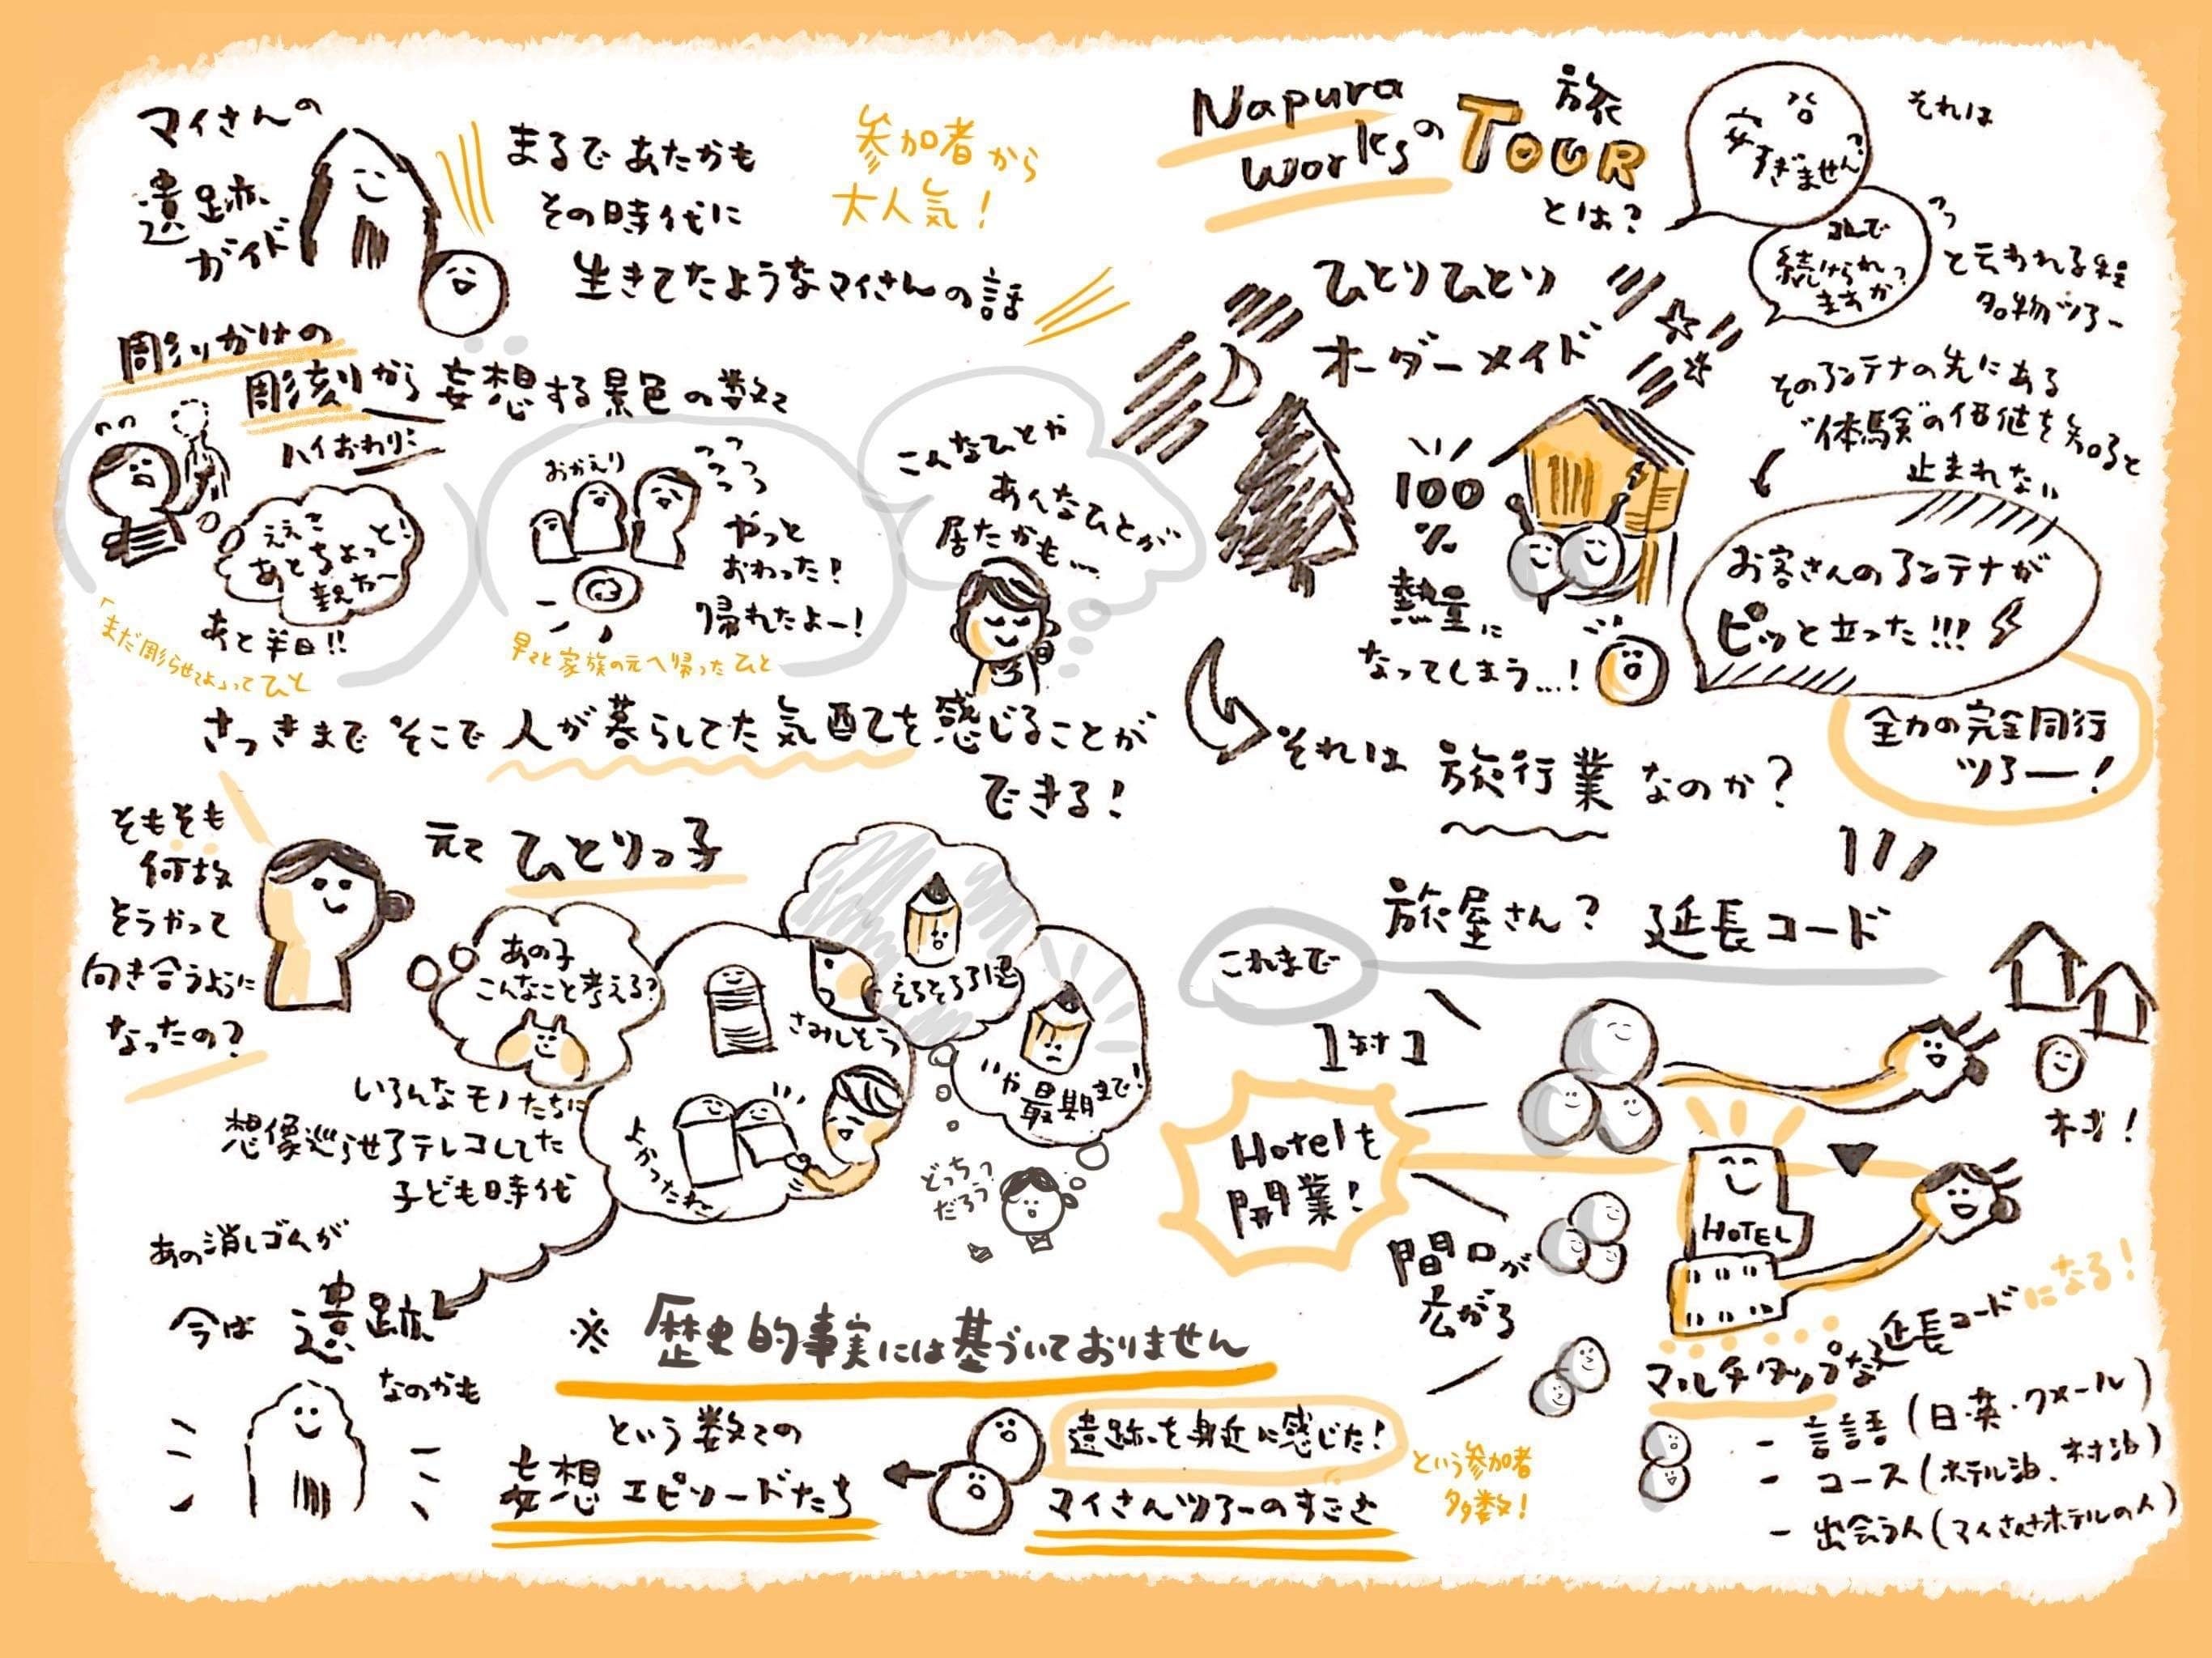 マイさんの
遺跡
ガイド
まるであたかも
その時代に
生きてたようなマイさんの話
参加者から
大人気！
彫りかけの
彫刻から妄想する景色の数々
ハイおわり！
あとちょっと！
あと半日!!
おかえり
やっと
おわった！
帰れたよー！
早々と家族の元へ帰ったひと
こんなひとや
あんなひとが
居たかも…
さっきまでそこで人が暮らしてた気配を感じることが
できる！
そもそも
何故
そうやって
向き合うように
なったの？
元々ひとりっ子
あの子
こんなこと考える？
さみしそう
よかったね
いや最期まで！
どっち
だろう
いろんなモノたちに
想像巡らせアテレコしてた
子ども時代
あの消しゴムが
今は遺跡
なのかも
※歴史的事実には基づいておりません
という数々の
妄想エピソードたち
遺跡を身近に感じた！
マイさんツアーのすごさ
という参加者
多数！
Napura
worksの
旅
TOUR
とは？
安すぎません？
それで
続けられ
ますか？
それは
と云われる程
名物ツアー
ひとりひとり
オーダーメイド
そのアンテナの先にある
“体験”の価値を知ると
止まれない
100
%
熱量に
なってしまう…！
お客さんのアンテナが
ピッと立った!!!
全力の完全同行
ツアー！
それは旅行業なのか？
旅屋さん？延長コード
これまで
1対1
村！
Hotelも
開業！
HOTEL
間口が
広がる
マルチタップな延長コードになる！
- 言語（日・英・クメール）
- コース（ホテル泊、村泊）
- 出会う人（マイさん＋ホテルの人）